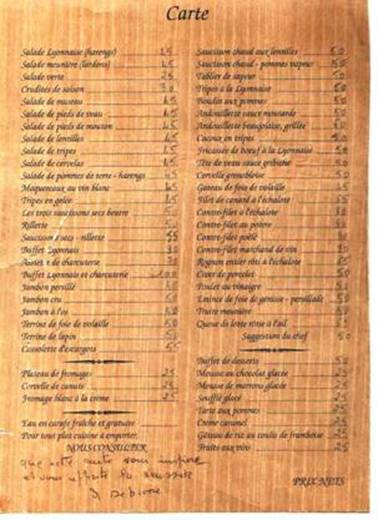 Carte
Salade Lyonnaise (harengs) 45
Salade meunière (lardons) 45
Salade verte 25
Crudités de saison 30
Salade de museau 45
Salade de pieds de veau 45
Salade de pieds de mouton 45
Salade de lentilles 45
Salade de tripes 45
Salade de cervelas 45
Salade de pommes de terre - harengs 45
Maquereaux au vin blanc 45
Tripes en gelée 45
Les trois saucissons secs beurre
Rillette
Saucisson secs - rillette 55
Buffet Lyonnais
Assiette de charcuterie
Buffet Lyonnais et charcuterie 100
Jambon persillé
Jambon cru 50
Jambon à l'os 50
Terrine de foie de volaille 50
Terrine de lapin 50
Cassolette d'escargots 55
Plateau de fromages 25
Cervelle de canuts 25
Fromage blanc à la crème 25
Eau en carafe fraîche et gratuite
Pour tout plat cuisine à emporter,
NOUS CONSULTER
que cette carte vous inspire
et vous
Saucisson chaud aux lentilles 50
Saucisson chaud - pommes vapeur 50
Tablier de sapeur 50
Tripes à la Lyonnaise 50
Boudin aux pommes 50
Andouillette sauce moutarde 50
Andouillette beaujolaise, grillée 50
Caïons en tripes 50
Fricassée de boeuf à la Lyonnaise 50
Tête de veau sauce gribiche 50
Cervelle grenobloise 50
Gateau de foie de volaille
Filet de canard à l'échalote
Contre-filet à l'échalote
Contre-filet au poivre
Contre-filet poêlé
Contre-filet marchand de vin
Rognon entier rôti à l'échalote
Civet de porcelet 50
Poulet au vinaigre 50
Emincé de foie de génisse - persillade 50
Truite meunière 50
Queue de lotte rôtie à l'ail
Suggestion du chef 50
Buffet de desserts 50
Mousse au chocolat glacée 25
Mousse de marrons glacée 25
Soufflé glacé 25
Tarte aux pommes 25
Crème caramel 25
Gâteau de riz au coulis de framboise 25
Fruits aux vins 25
PRIX NETS